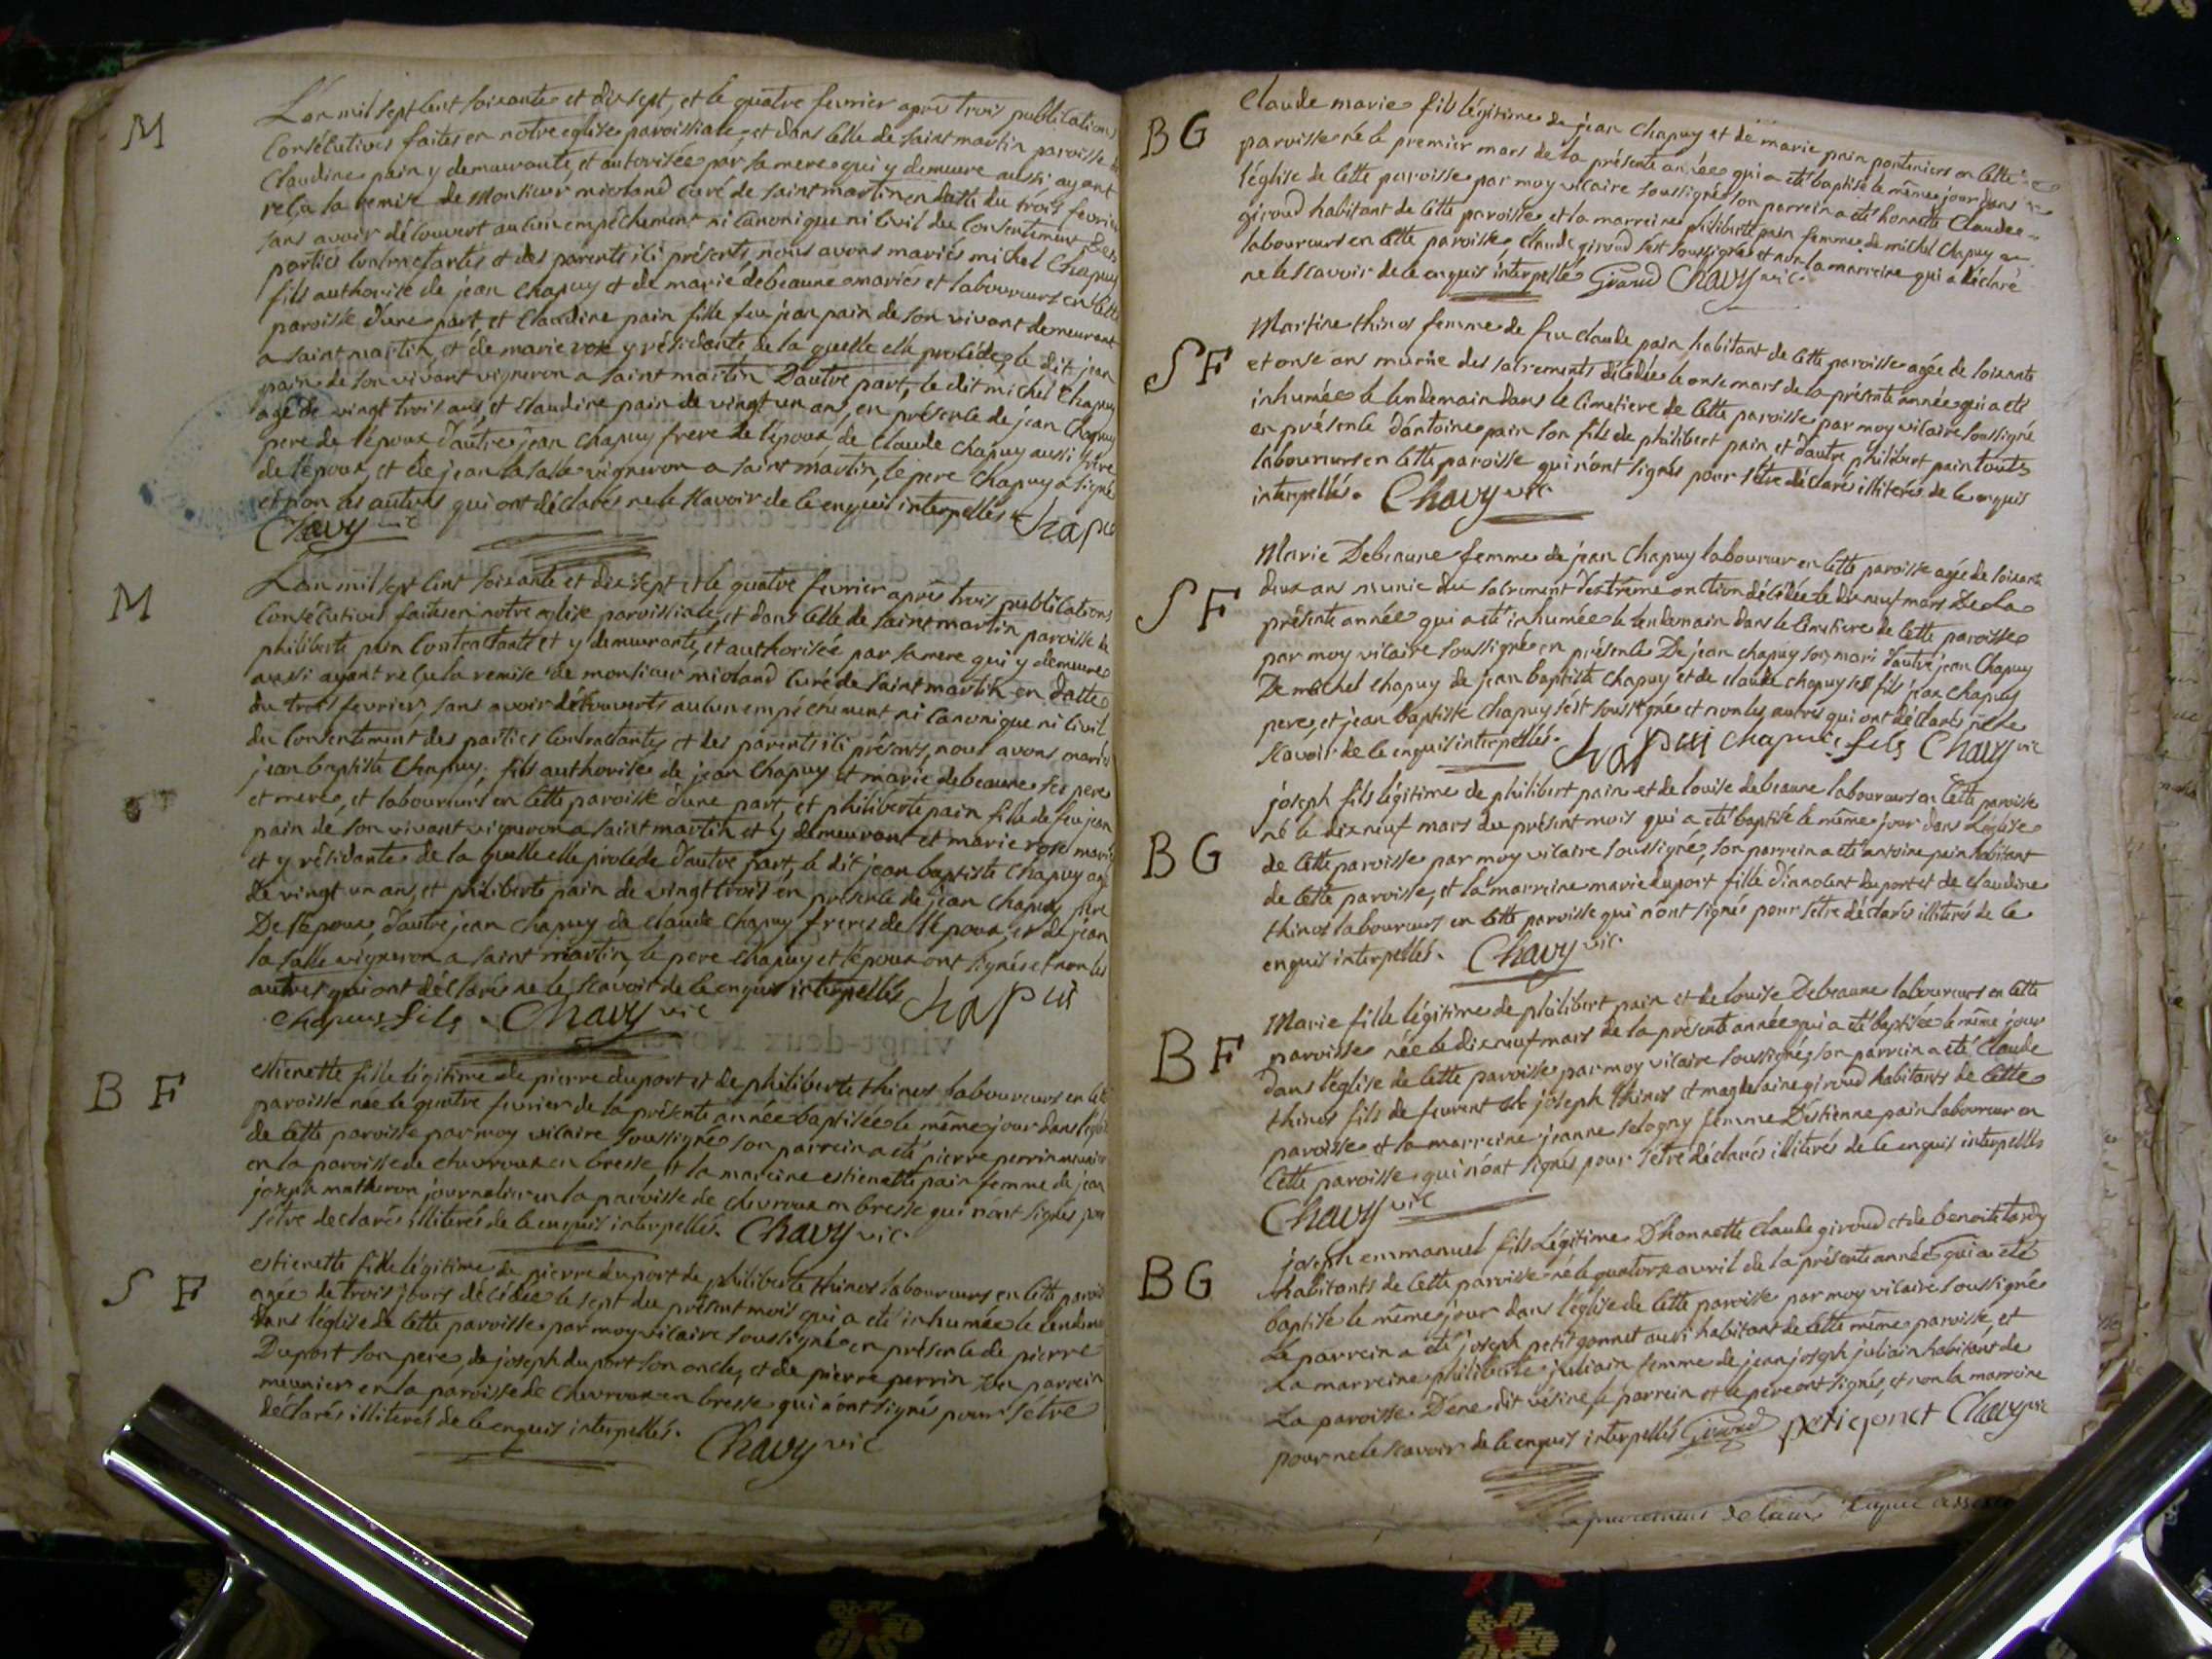 M
L'an mil sept cent soixante et dix sept, et le quatre fevrier après trois publications
Consécutives faites en notre eglise paroissiale, et dans celle de saint martin paroisse de
Claudine pain y demeurante, et autorisée par sa mere qui y demeure aussi ayant
reçu la remise de Monsieur niobland Curé de saint martin en datte du trois fevrier
sans avoir découvert aucun empêchement ni Canonique ni Civil du Consentement des
parties Contractantes et des parents ici présents, nous avons mariés michel Chapuy
fils authorisé de jean Chapuy et de marie debeaune mariés et laboureurs en cette
paroisse d'une part, et Claudine pain fille feu jean pain de son vivant demeurant
a saint martin, et de marie rose y résidante, de la quelle elle procède, le dit jean
pain de son vivant vigneron a saint martin D'autre part, le dit michel Chapuy
agé de vingt trois ans, et Claudine pain de vingt un ans, en présence de jean Chapuy
pere de l'époux d'autre jean Chapuy frere de l'époux, de Claude Chapuy aussi frere
de l'époux, et de jean la salle vigneron a saint martin, le pere Chapuy a signé
et non les autres qui ont déclarés ne le sçavoir de ce enquis interpellés
Chavy vic
M
L'an mil sept cent soixante et dix sept et le quatre fevrier après trois publications
Consécutives faites en notre eglise paroissiale, et dans celle de saint martin paroisse de
philiberte pain Contractante et y demeurante, et authorisée par sa mere qui y demeure
aussi ayant reçu la remise de monsieur niobland Curé de saint martin en datte
du trois fevrier, sans avoir découverts aucun empêchement ni Canonique ni Civil
du Consentement des parties Contractantes et des parents ici présents, nous avons mariés
jean baptiste Chapuy, fils authorisé de jean Chapuy et marie debeaune ses pere
et mere, et laboureurs en cette paroisse d'une part, et philiberte pain fille de feu jean
pain de son vivant vigneron a saint martin et y demeurant et marie rose
et y résidante de la quelle elle procède d'autre part, le dit jean baptiste Chapuy agé
de vingt un ans, et philiberte pain de vingt trois en présence de jean Chapuy pere
De l'époux, d'autre jean Chapuy de Claude Chapuy freres de l'époux, et de jean
la salle vigneron a saint martin, le pere Chapuy et l'époux ont signés et non les
autres qui ont déclarés ne le sçavoir de ce enquis interpellés Chapui
Chapuis fils Chavy vic
B F
estienette fille légitime de pierre duport et de philiberte thinos laboureurs en cette
paroisse née le quatre fevrier de la présente année baptisée le même jour dans l'église
de cette paroisse par moy vicaire soussigné son parrein a eté pierre perrin meunier
en la paroisse de chevroux en bresse et la mareine estienette pain femme de jean
joseph matheron journalier en la paroisse de chevroux en bresse qui n'ont signés pour
s'être declarés illiterés de ce enquis interpellés. Chavy vic.
S F
estienette fille légitime de pierre duport de philiberte thinos laboureurs en cette paroisse
agée de trois jours décédée le sept du présent mois qui a eté inhumée le lendemain
dans l'église de cette paroisse par moy vicaire soussigné en présence de pierre
Duport son pere, de joseph duport son oncle, et de pierre perrin son parrein
meunier en la paroisse de Chevroux en bresse qui n'ont signés pour s'etre
déclarés illiterés de ce enquis interpellés.
Chavy vic
BG
Claude marie fils légitime de jean Chapuy et de marie pain pontenier en cette
paroisse né le premier mars de la présente année qui a eté baptisé le même jour dans
l'église de cette paroisse par moy vicaire soussigné son parrein a eté honnette Claude
giroud habitant de cette paroisse et la marreine philiberte pain femme de michel Chapuy
laboureurs en cette paroisse, Claude giroud s'est soussigné et non la marreine qui a déclaré
ne le scavoir de ce enquis interpellé Giroud Chavy vic.
SF
Martine thinos femme de feu Claude pain habitant de cette paroisse agée de soixante
et onse ans munie des sacrements décédée le onse mars de la présente année qui a eté
inhumée le lendemain dans le Cimetiere de cette paroisse par moy vicaire soussigné
en présence d'antoine pain son fils de philibert pain et d'autre philibert pain touts
laboureurs en cette paroisse qui n'ont signés pour s'être déclaré illiterés de ce enquis
interpellés. Chavy vic.
SF
Marie Debeaune femme de jean Chapuy laboureur en cette paroisse agée de soixante
deux ans munie du sacrement d'extrême onction décédée le dix neuf mars De la
présente année qui a eté inhumée le lendemain dans le Cimetiere de cette paroisse
par moy vicaire soussigné en présence De jean chapuy son mari d'autre jean Chapuy
De michel chapuy de jean baptiste Chapuy et de claude chapuy ses fils jean chapuy
pere, et jean baptiste Chapuy s'est soussignés et non les autres qui ont déclarés ne le
scavoir de ce enquis interpellés. Chapui chapuis fils Chavy vic
BG
joseph fils légitime de philibert pain et de louise debeaune laboureurs en cette paroisse
né le dix neuf mars du présent mois qui a eté baptisé le même jour dans l'église
de cette paroisse par moy vicaire soussigné, son parrein a eté antoine pain habitant
de cette paroisse, et la marreine marie duport fille d'innocent duport et de claudine
thinos laboureurs en cette paroisse qui n'ont signés pour s'etre déclarés illiterés de ce
enquis interpellés. Chavy vic.
BF
Marie fille légitime de philibert pain et de louise Debeaune laboureurs en cette
paroisse née le dix neuf mars de la présente année qui a eté baptisée le même jour
dans l'église de cette paroisse par moy vicaire soussigné, son parrein a eté Claude
thinos fils de feurent de joseph thinos et magdelaine giroud habitants de cette
paroisse et la marreine jeanne selogny femme D'estienne pain laboureur en
Cette paroisse qui n'ont signés pour s'etre déclarés illiterés de ce enquis interpellés
Chavy vic
BG
joseph emmanuel fils légitime D'honnette Claude giroud et de benoite tardy
habitants de cette paroisse né le quatorze avril de la présente année qui a eté
baptisé le même jour dans l'église de cette paroisse par moy vicaire soussigné
Le parrein a eté joseph petitgonnet aussi habitant de cette même paroisse, et
La marreine philiberte juliain femme de jean joseph juliain habitant de
La paroisse D'ene dit vésine le parrein et le pere ont signés, et non la marreine
pour ne le scavoir de ce enquis interpellés Giroud petigonet Chavy vic